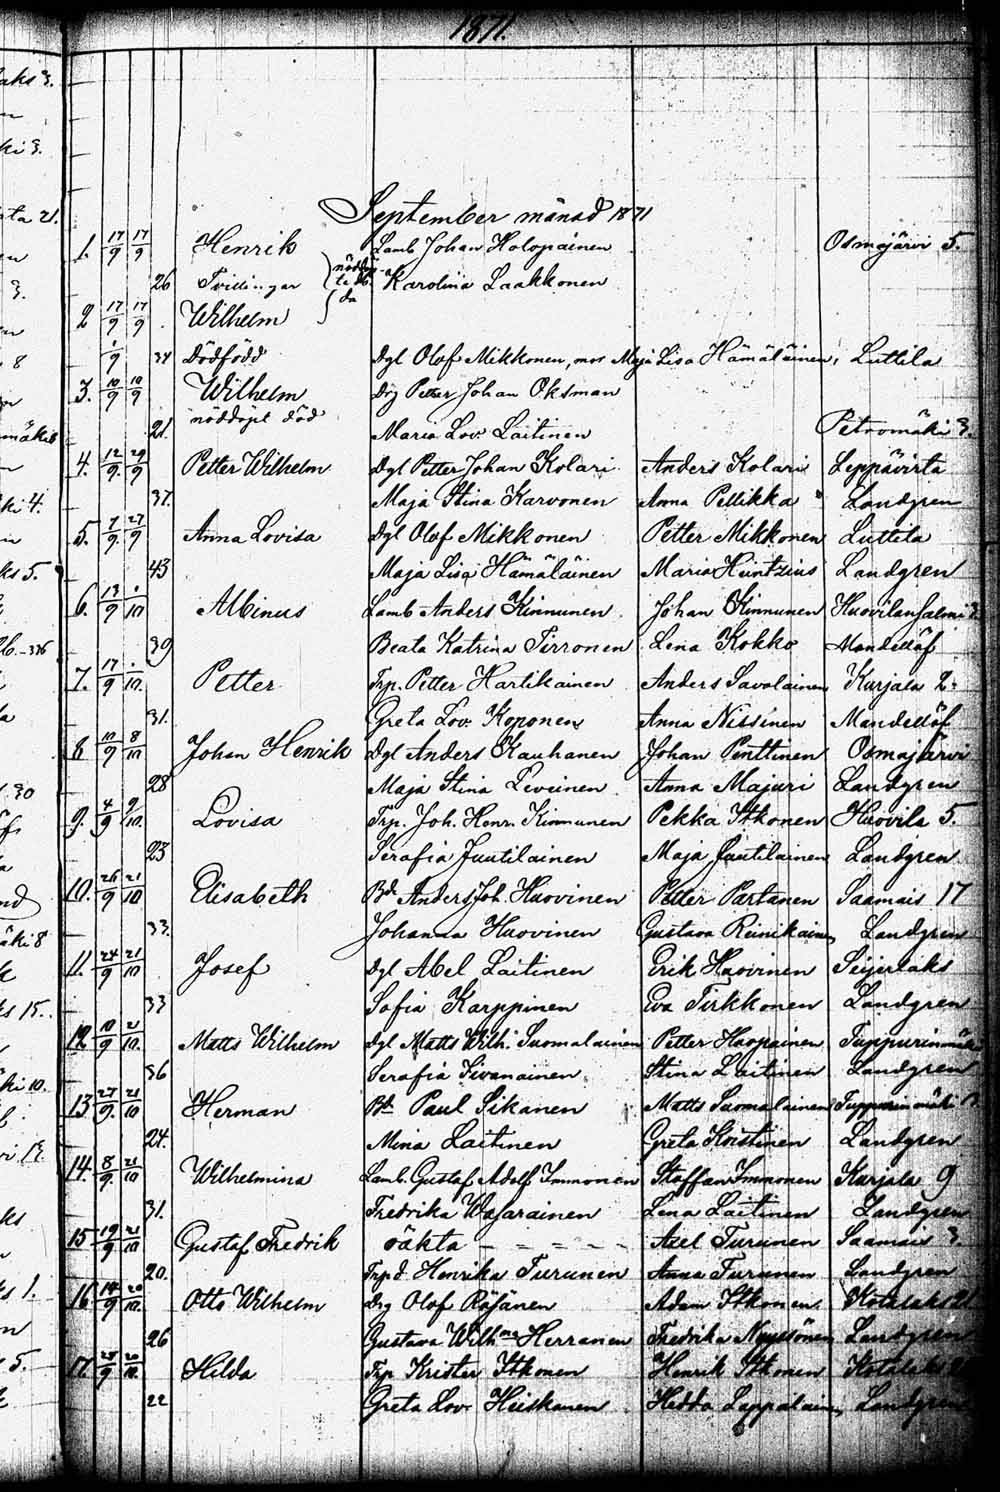 1871.
September månad 1871
1. 17/9 17/9 Henrik Lamb. Johan Holopainen Osmajärvi 5.
26 Tvillingar nöddöpta da Karolina Laakkonen
2 17/9 17/9 Wilhelm
1/9 34 Dödfödd Dgl Olof Mikkonen, mor Maja Lisa Hämäläinen, Luttila
3. 10/9 10/9 Wilhelm Drg Petter Johan Oksman
21. nöddöpt död Maria Lov. Laitinen Petromäki 3.
4. 12/9 29/9 Petter Wilhelm Dgl Petter Johan Kolari Anders Kolari Leppävirta
37. Maja Stina Karvonen Anna Pellikka Landgren
5. 7/9 27/9 Anna Lovisa Dgl Olof Mikkonen Petter Mikkonen Luttila
43 Maja Lisa Hämäläinen Maria Hintzius Landgren
6. 13/9 1/10 Albinus Lamb. Anders Kinnunen Johan Kinnunen Huovilansalmi 3.
39 Beata Katrina Tirronen Lena Kokko Mandellöf
7. 17/9 1/10. Petter Trp. Petter Hartikainen Anders Savolainen Kurjala 2.
31. Greta Lov. Koponen Anna Nissinen Mandellöf
8 10/9 8/10 Johan Henrik Dgl Anders Kauhanen Johan Penttinen Osmajärvi
28 Maja Stina Leveinen Anna Majuri Landgren
9. 4/9 9/10. Lovisa Trp. Joh. Henr. Kinnunen Pekka Itkonen Huovila 5.
23 Serafia Juutilainen Maja Juutilainen Landgren
10. 26/9 21/10 Elisabeth Bd Anders Joh. Huovinen Petter Partanen Saamais 17
33. Johanna Huovinen Gustava Reinikainen Landgren
11. 24/9 21/10 Josef Dgl Abel Laitinen Erik Huovinen Seijerlaks
33 Sofia Karppinen Eva Tirkkonen Landgren
12. 10/9 21/10. Matts Wilhelm Dgl Matts Wilh. Suomalainen Petter Haapainen Tuppurinmäki
36 Serafia Sivanainen Stina Laitinen Landgren
13 27/9. 21/10 Herman Bd Paul Sikanen Matts Suomalainen Tuppurinmäki
24. Mina Laitinen Greta Koistinen Landgren
14. 8/9. 21/10 Wilhelmina Lamb. Gustaf Adolf Immonen Staffan Immonen Kurjala 9
31. Fredrika Wasarainen Lena Laitinen Landgren
15 19/9 21/10 Gustaf Fredrik oäkta - - - - - Axel Turunen Saamais 3.
20. Trp d. Henrika Turunen Anna Turunen Landgren
16 14/9 20/10. Otto Wilhelm Drg Olof Räsänen Adam Itkonen Kotalaks 21
26 Gustava Wilhna Herranen Fredrika Nyyssönen Landgren
17. 28/9 20/10. Hilda Trp Krister Itkonen Henrik Itkonen Kotalaks
22 Greta Lov. Heiskanen Hedda Lappalainen Landgren